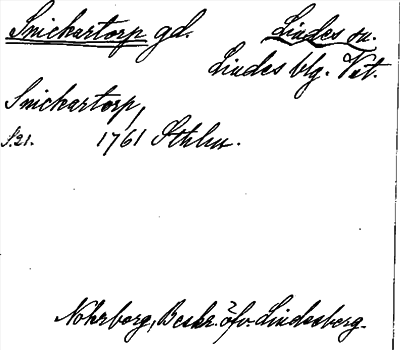 Snickartorp gd. Lindes sn.
Lindes blg. Vst.
Snickartorp,
S.21. 1761 Sthlm.
Nohrborg, Beskr. öfv. Lindesberg.